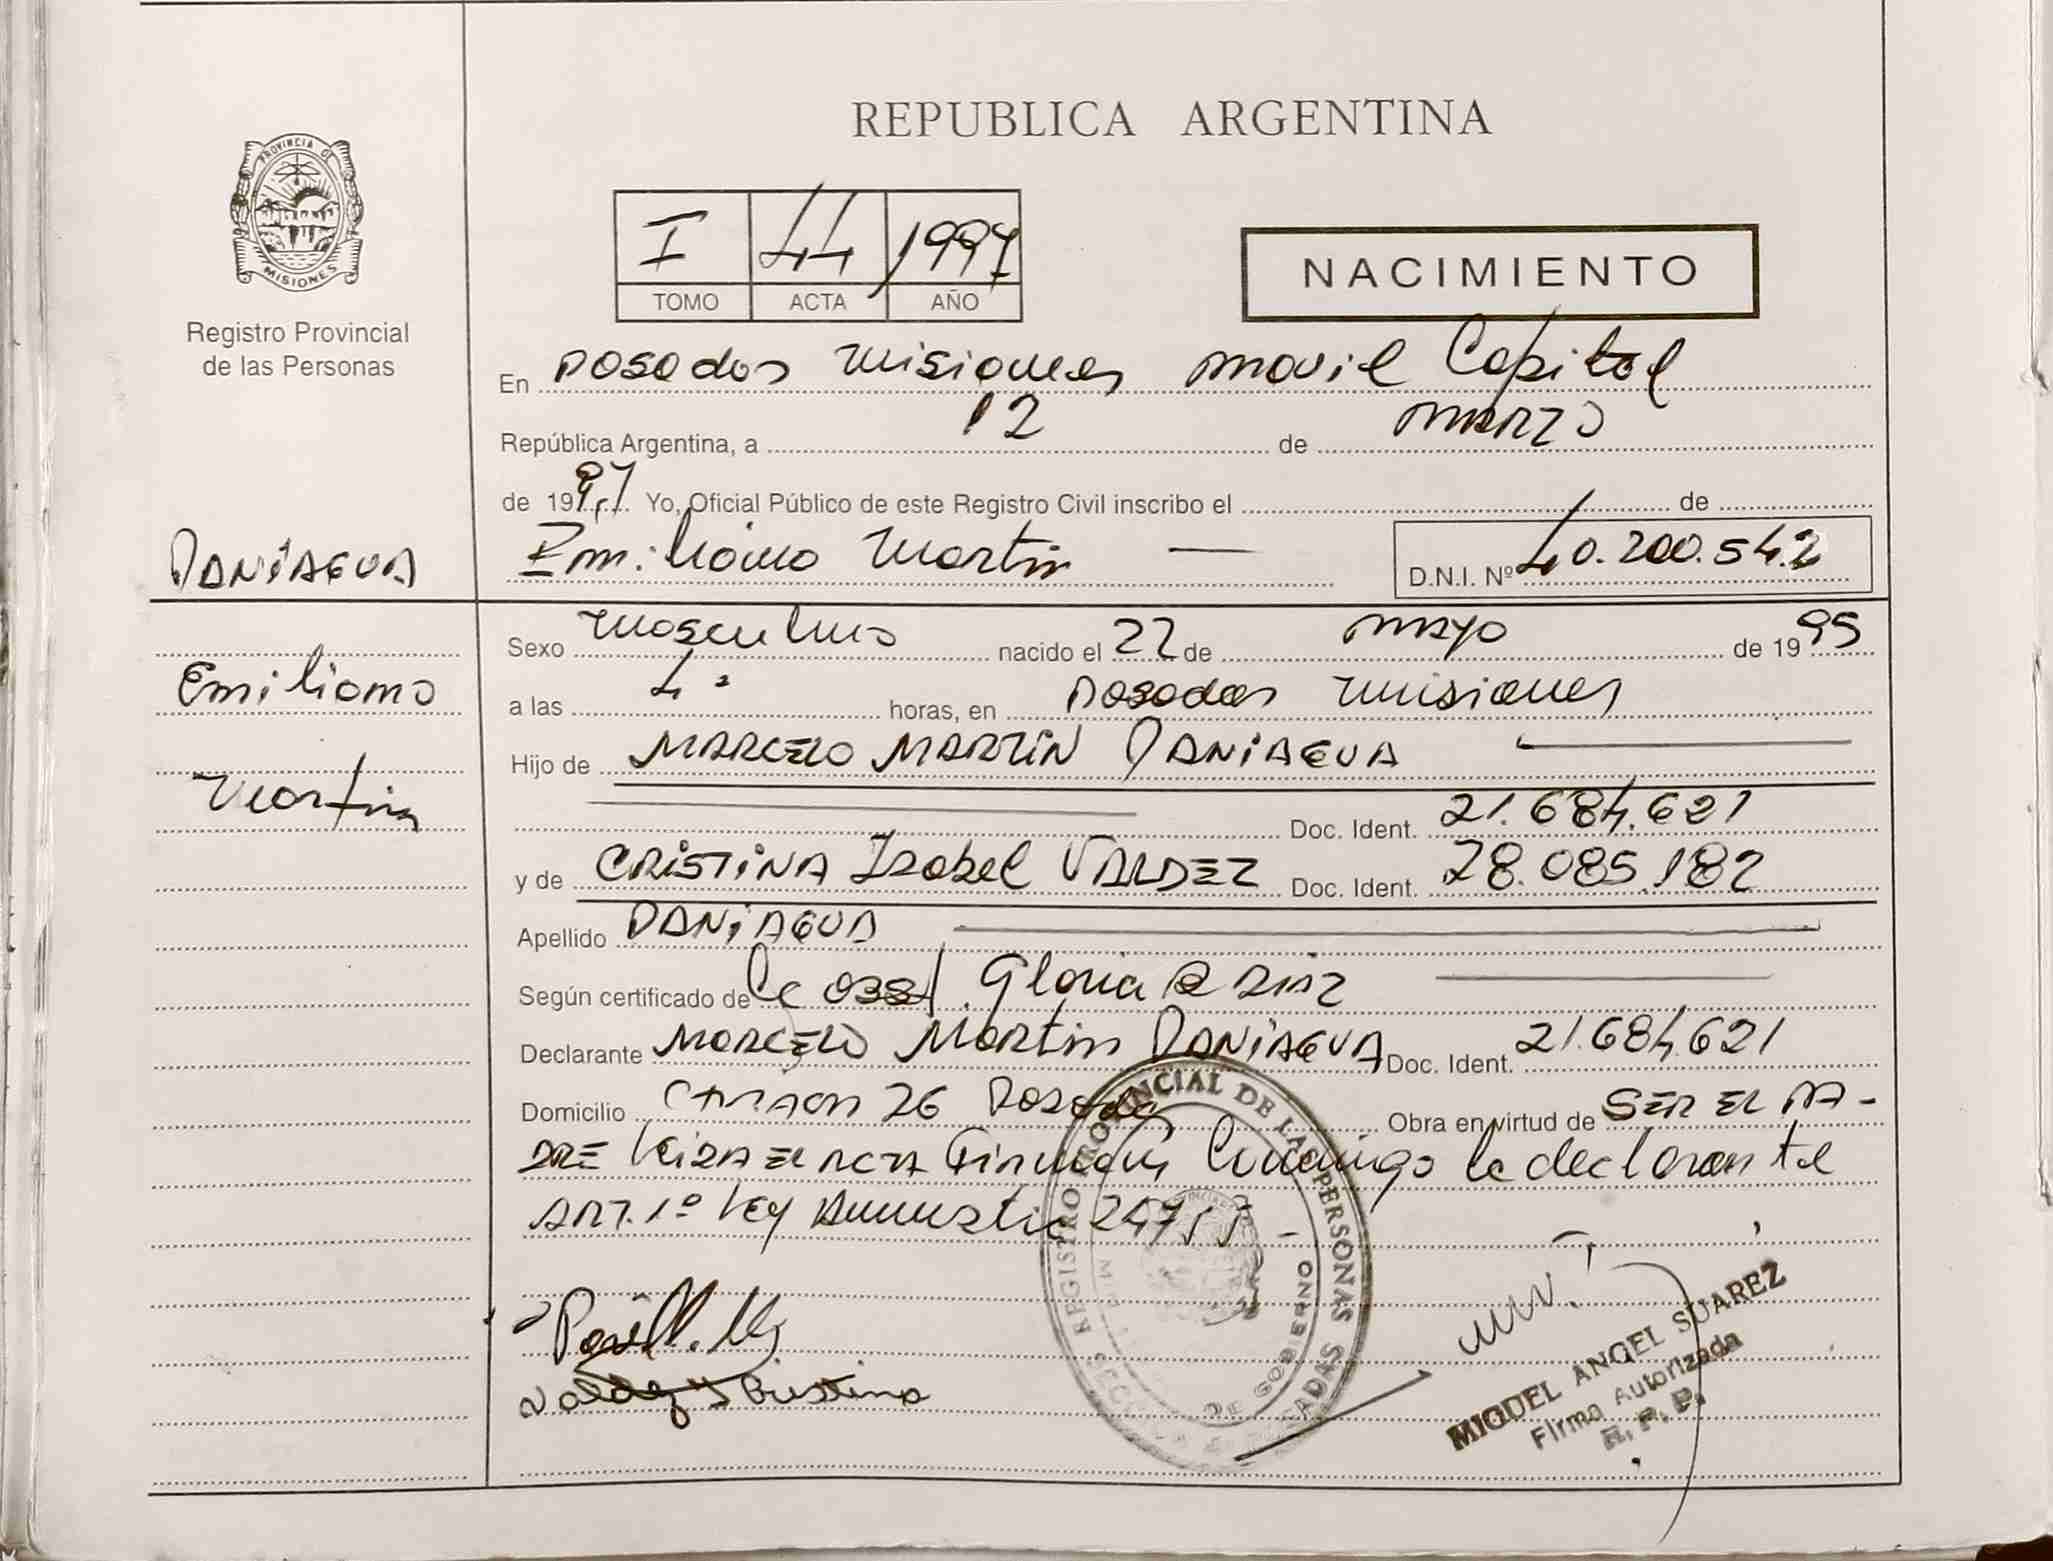 REPUBLICA ARGENTINA
PROVINCIA DE
MISIONES
Registro Provincial
de las Personas
I 44 1997
TOMO ACTA AÑO
NACIMIENTO
En Posadas Misiones Movil Capital
República Argentina, a 12 de Marzo
de 1997 Yo, Oficial Público de este Registro Civil inscribo el de
PANIAGUA
Emiliano Martin
D.N.I. Nº 40.200.542
Emiliano
Martin
Sexo Masculino nacido el 22 de Mayo de 1995
a las 4 horas, en Posadas Misiones
Hijo de MARCELO MARTIN PANIAGUA
Doc. Ident. 21.684.621
y de CRISTINA Isabel VALDEZ Doc. Ident. 28.085.182
Apellido PANIAGUA
Según certificado de Gloria R DIAZ
Declarante Marcelo Martin PANIAGUA Doc. Ident. 21.684.621
Domicilio 26 Posadas Obra en virtud de SER EL PA-
DRE Leida EL ACTA Firman Conmigo la declarante
ART. 1º Ley
Valdez Cristina
REGISTRO PROVINCIAL DE LAS PERSONAS
DE GOBIERNO
MIGUEL ANGEL SUAREZ
Firma Autorizada
R. P. P.